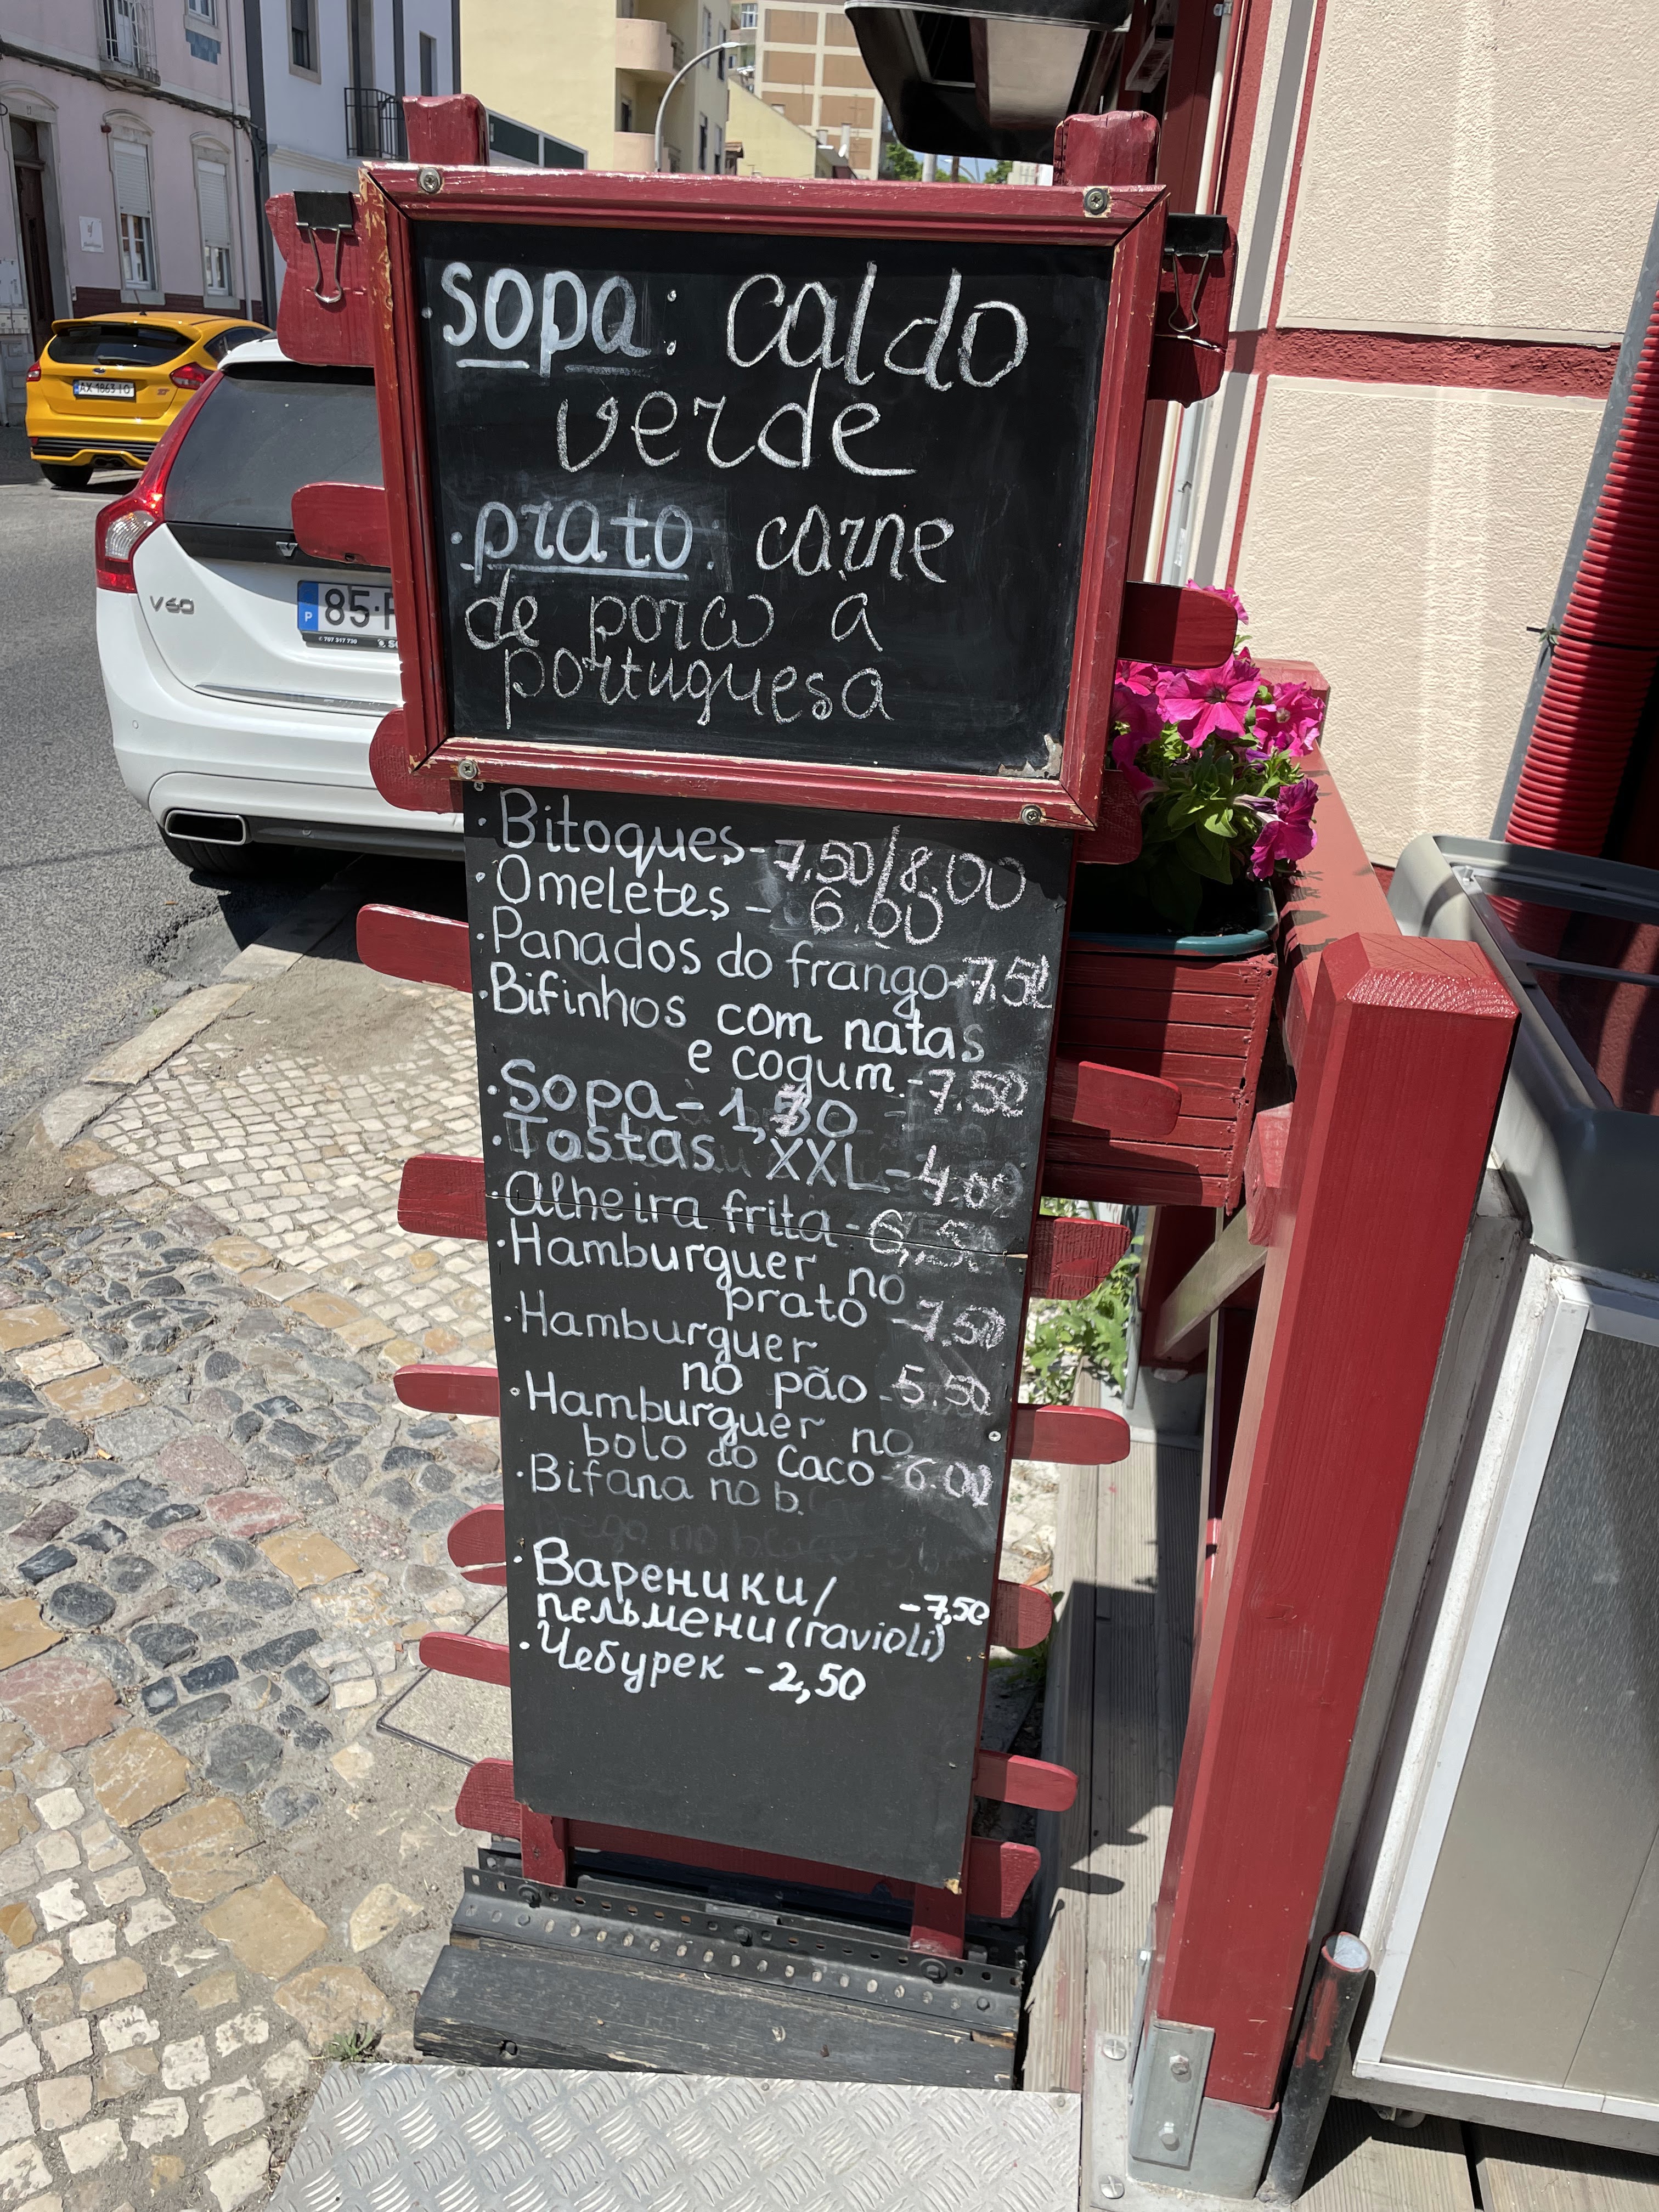 sopa: caldo
verde
prato: carne
de porco a
portuguesa
· Bitoques - 7,50/8.00
· Omeletes - 6.60
· Panados do frango - 7,50
· Bifinhos com natas
e cogum. - 7.50
· Sopa - 1,70
· Tostas XXL - 4.00
· Alheira frita - 6,50
· Hamburguer no
prato - 7.50
· Hamburguer
no pão - 5.50
· Hamburguer no
bolo do Caco - 6.00
· Bifana no b.
· Вареники/
пельмени (ravioli) - 7,50
· Чебурек - 2,50
AX 1863 IO
V60
P 85
707 317 720